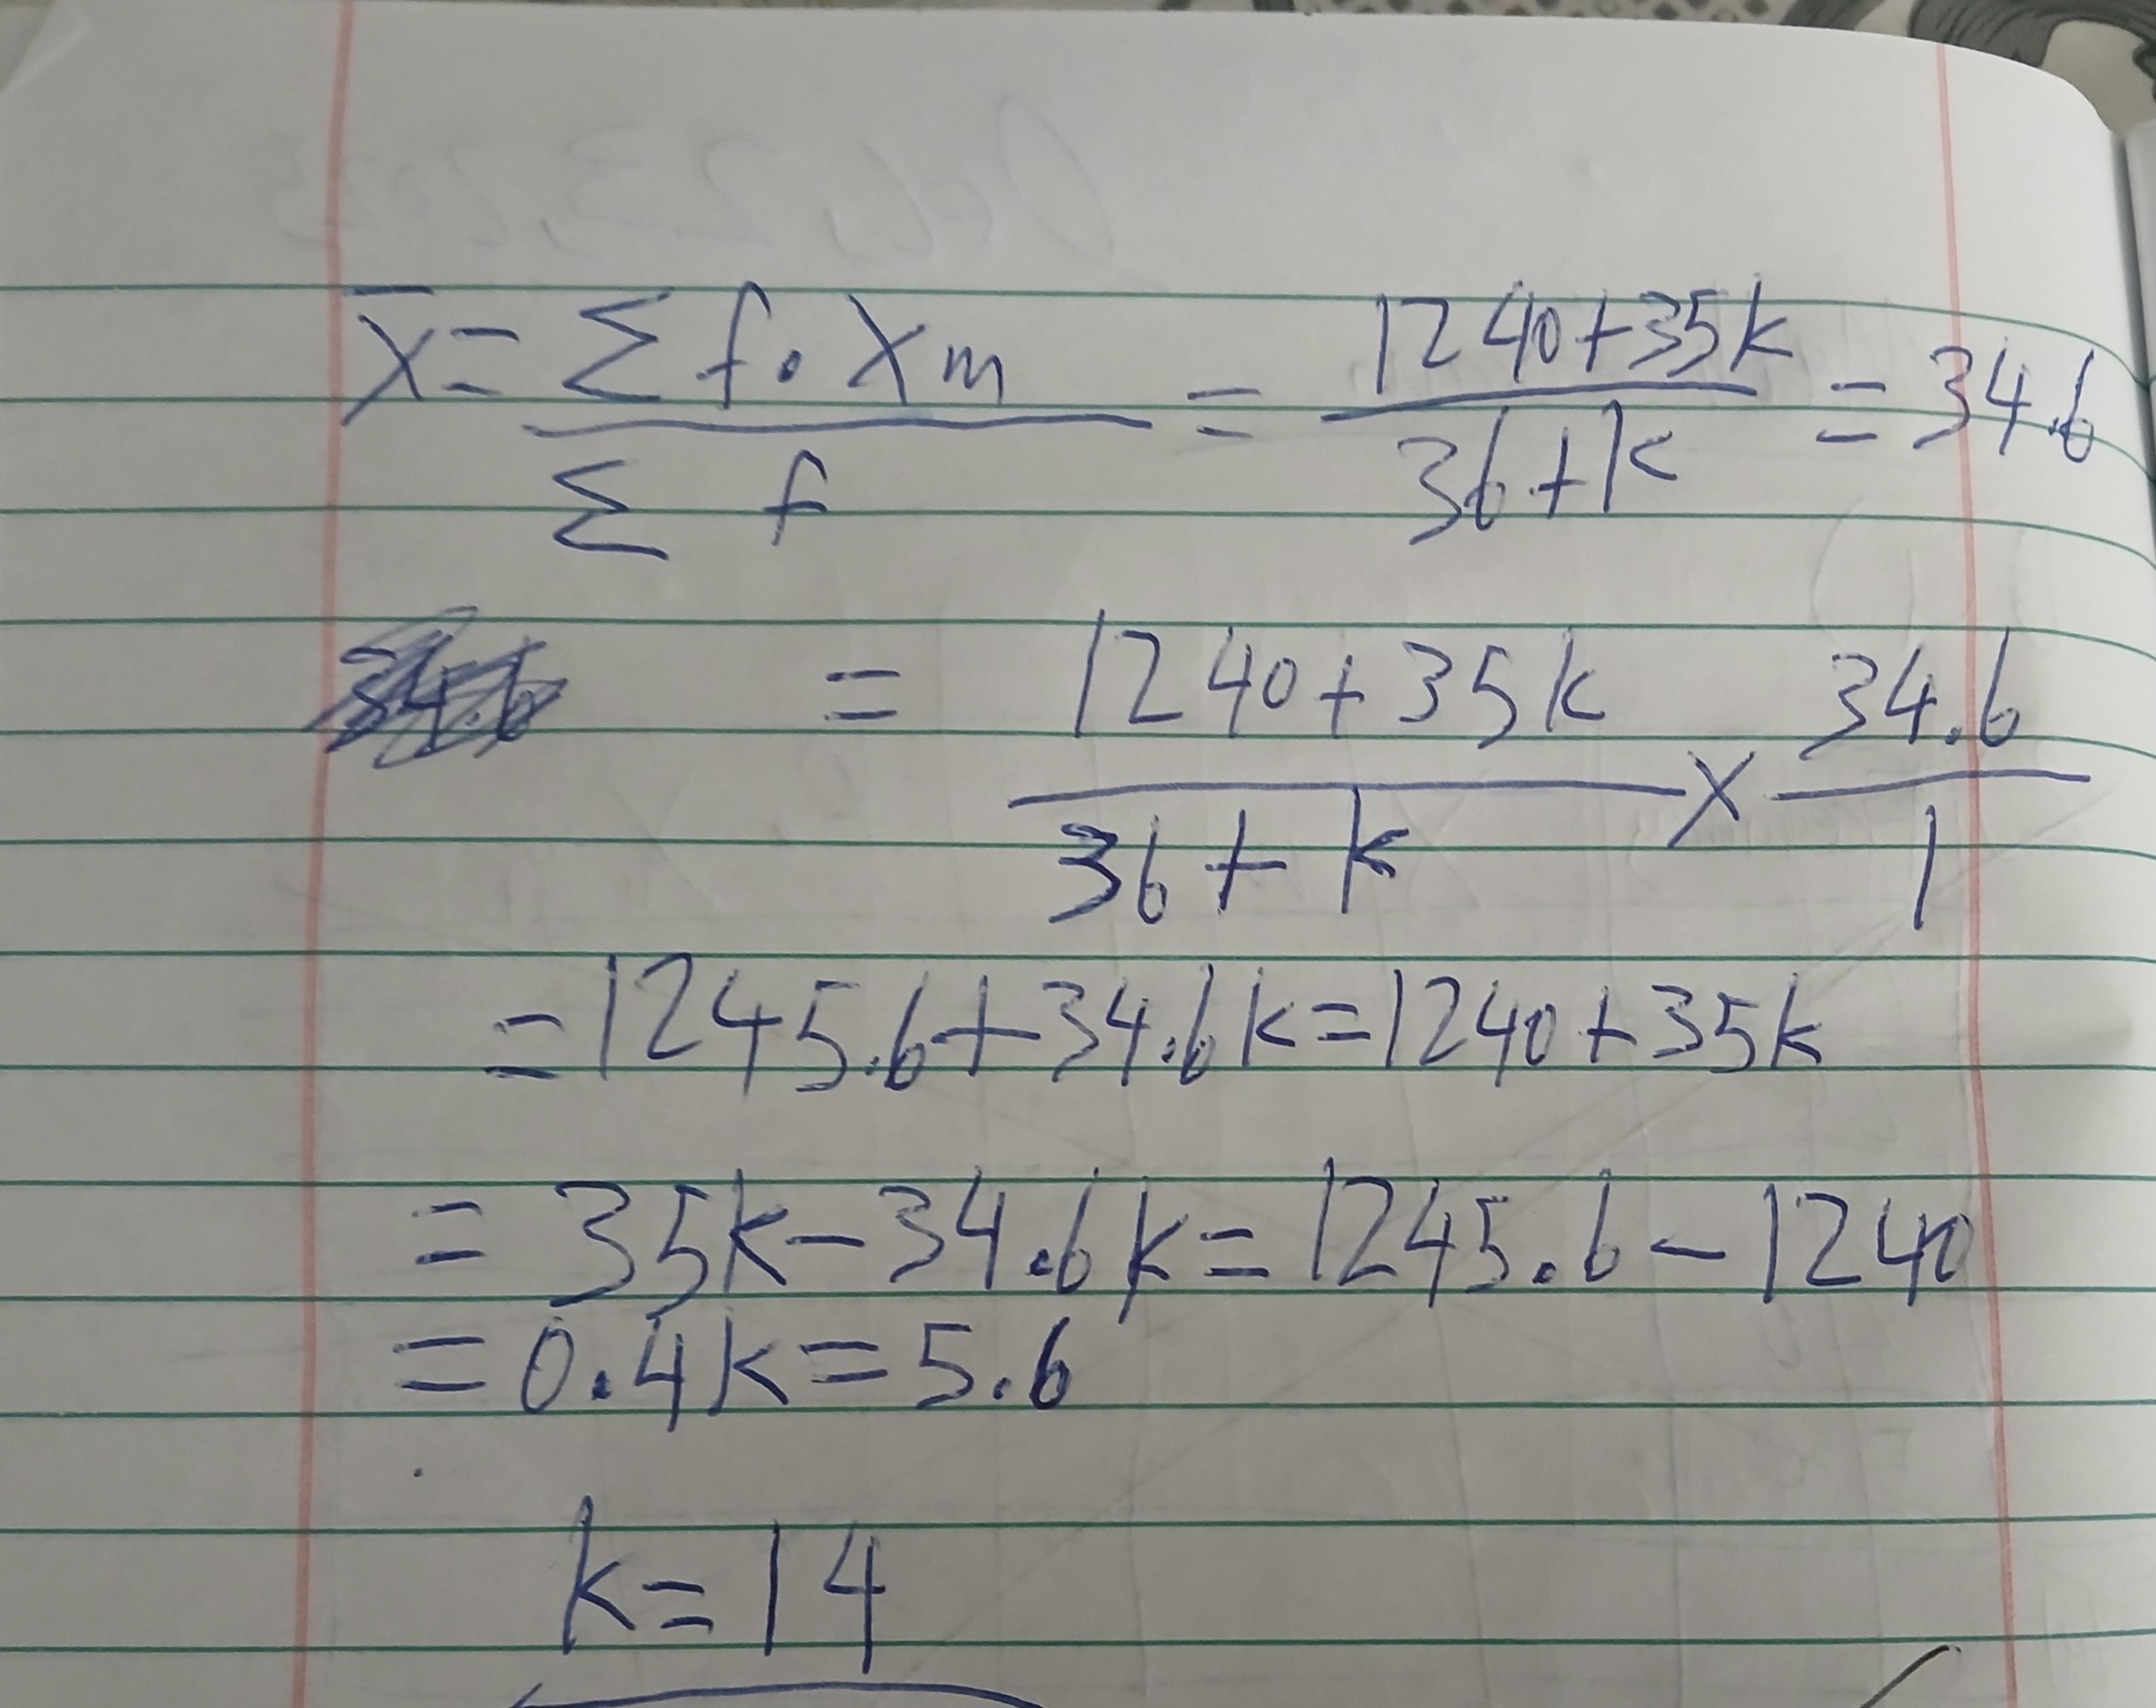 x̄ = Σ f · Xm / Σ f = 1240+35k / 36+k = 34.6
= 1240+35k / 36+k × 34.6 / 1
= 1245.6+34.6k=1240+35k
= 35k-34.6k=1245.6-1240
= 0.4k=5.6
k=14